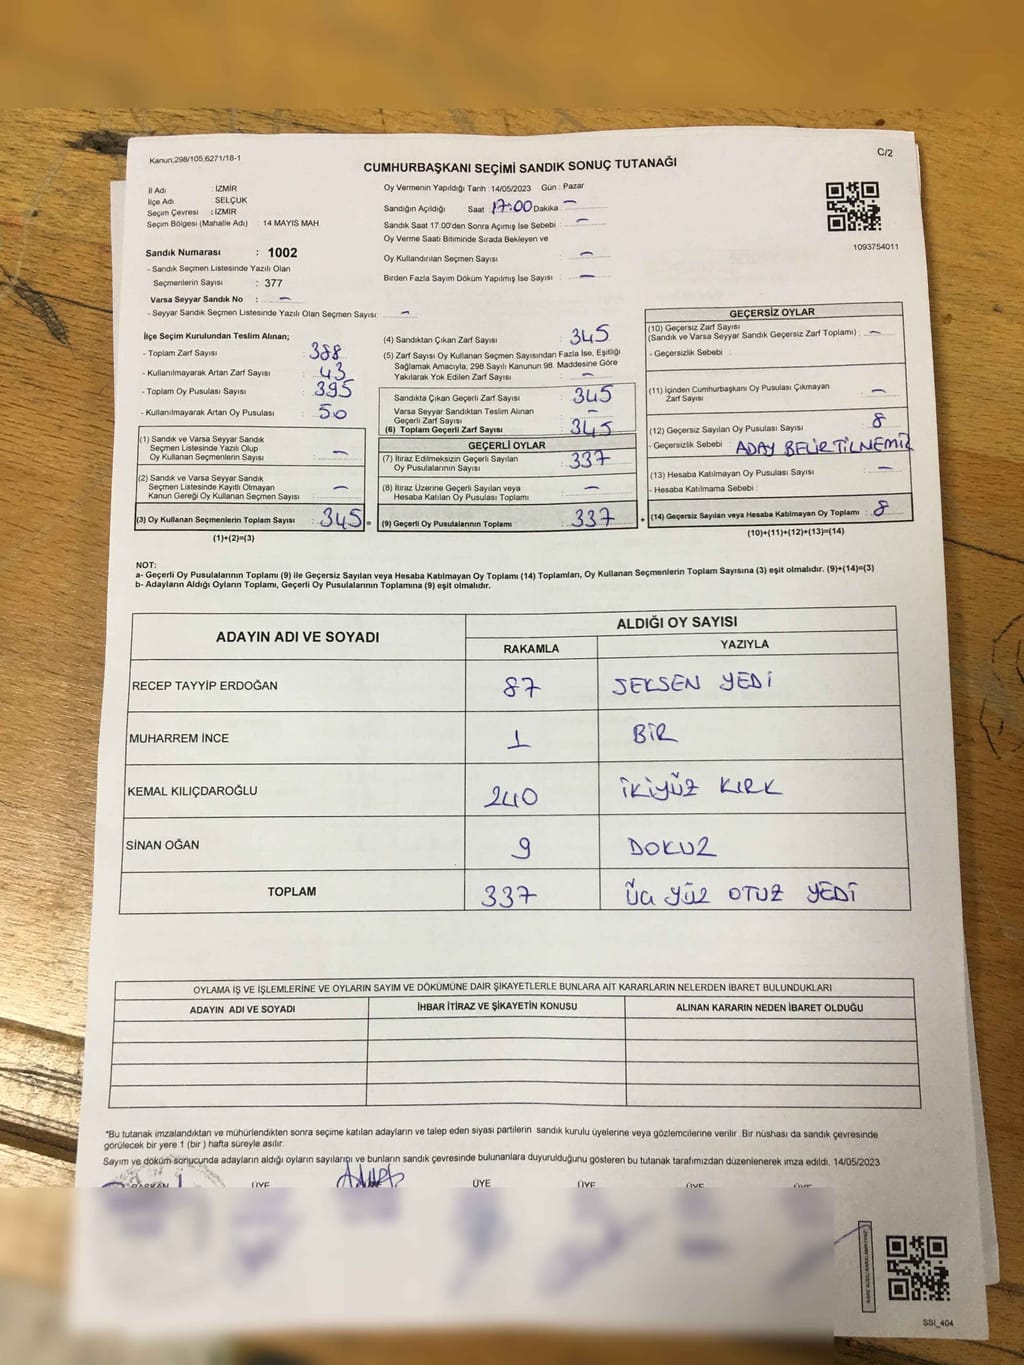 Kanun,298/105,6271/18-1
C/2
CUMHURBAŞKANI SEÇİMİ SANDIK SONUÇ TUTANAĞI
İl Adı : İZMİR
İlçe Adı : SELÇUK
Seçim Çevresi : İZMİR
Seçim Bölgesi (Mahalle Adı) : 14 MAYIS MAH
Sandık Numarası : 1002
- Sandık Seçmen Listesinde Yazılı Olan
Seçmenlerin Sayısı : 377
Varsa Seyyar Sandık No : —
- Seyyar Sandık Seçmen Listesinde Yazılı Olan Seçmen Sayısı: —
Oy Vermenin Yapıldığı Tarih :14/05/2023 Gün : Pazar
Sandığın Açıldığı Saat 17:00 Dakika : —
Sandık Saat 17.00'den Sonra Açımış İse Sebebi : —
Oy Verme Saati Bitiminde Sırada Bekleyen ve
Oy Kullandırılan Seçmen Sayısı : —
Birden Fazla Sayım Döküm Yapılmış İse Sayısı : —
1093754011
İlçe Seçim Kurulundan Teslim Alınan;
- Toplam Zarf Sayısı : 388
- Kullanılmayarak Artan Zarf Sayısı : 43
- Toplam Oy Pusulası Sayısı : 395
- Kullanılmayarak Artan Oy Pusulası : 50
(1) Sandık ve Varsa Seyyar Sandık
Seçmen Listesinde Yazılı Olup
Oy Kullanan Seçmenlerin Sayısı : —
(2) Sandık ve Varsa Seyyar Sandık
Seçmen Listesinde Kayıtlı Olmayan
Kanun Gereği Oy Kullanan Seçmen Sayısı : —
(3) Oy Kullanan Seçmenlerin Toplam Sayısı : 345 =
(1)+(2)=(3)
(4) Sandıktan Çıkan Zarf Sayısı : 345
(5) Zarf Sayısı Oy Kullanan Seçmen Sayısından Fazla İse, Eşitliği
Sağlamak Amacıyla, 298 Sayılı Kanunun 98. Maddesine Göre
Yakılarak Yok Edilen Zarf Sayısı : —
Sandıkta Çıkan Geçerli Zarf Sayısı : 345
Varsa Seyyar Sandıktan Teslim Alınan
Geçerli Zarf Sayısı : —
(6) Toplam Geçerli Zarf Sayısı : 345
GEÇERLİ OYLAR
(7) İtiraz Edilmeksizin Geçerli Sayılan
Oy Pusulalarının Sayısı : 337
(8) İtiraz Üzerine Geçerli Sayılan veya
Hesaba Katılan Oy Pusulası Toplamı : —
(9) Geçerli Oy Pusulalarının Toplamı : 337 +
GEÇERSİZ OYLAR
(10) Geçersiz Zarf Sayısı
(Sandık ve Varsa Seyyar Sandık Geçersiz Zarf Toplamı) : —
- Geçersizlik Sebebi :
(11) İçinden Cumhurbaşkanı Oy Pusulası Çıkmayan
Zarf Sayısı : —
(12) Geçersiz Sayılan Oy Pusulası Sayısı : 8
- Geçersizlik Sebebi : ADAY BELİRTİLNEMİZ
(13) Hesaba Katılmayan Oy Pusulası Sayısı : —
- Hesaba Katılmama Sebebi :
(14) Geçersiz Sayılan veya Hesaba Katılmayan Oy Toplamı : 8
(10)+(11)+(12)+(13)=(14)
NOT:
a- Geçerli Oy Pusulalarının Toplamı (9) ile Geçersiz Sayılan veya Hesaba Katılmayan Oy Toplamı (14) Toplamları, Oy Kullanan Seçmenlerin Toplam Sayısına (3) eşit olmalıdır. (9)+(14)=(3)
b- Adayların Aldığı Oyların Toplamı, Geçerli Oy Pusulalarının Toplamına (9) eşit olmalıdır.
ADAYIN ADI VE SOYADI
ALDIĞI OY SAYISI
RAKAMLA YAZIYLA
RECEP TAYYİP ERDOĞAN 87 SEKSEN YEDİ
MUHARREM İNCE 1 BİR
KEMAL KILIÇDAROĞLU 240 İKİYÜZ KIRK
SİNAN OĞAN 9 DOKUZ
TOPLAM 337 ÜÇ YÜZ OTUZ YEDİ
OYLAMA İŞ VE İŞLEMLERİNE VE OYLARIN SAYIM VE DÖKÜMÜNE DAİR ŞİKAYETLERLE BUNLARA AİT KARARLARIN NELERDEN İBARET BULUNDUKLARI
ADAYIN ADI VE SOYADI İHBAR İTİRAZ VE ŞİKAYETİN KONUSU ALINAN KARARIN NEDEN İBARET OLDUĞU
*Bu tutanak imzalandıktan ve mühürlendikten sonra seçime katılan adayların ve talep eden siyasi partilerin sandık kurulu üyelerine veya gözlemcilerine verilir .Bir nüshası da sandık çevresinde
görülecek bir yere 1 (bir ) hafta süreyle asılır.
Sayım ve döküm sonucunda adayların aldığı oyların sayılarını ve bunların sandık çevresinde bulunanlara duyurulduğunu gösteren bu tutanak tarafımızdan düzenlenerek imza edildi. 14/05/2023
BAŞKAN ÜYE ÜYE ÜYE ÜYE ÜYE
SSİ_404